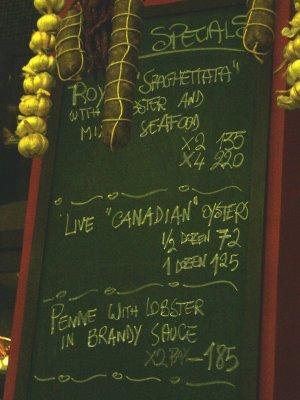 SPECIALS
ROY "SPAGHETTATA"
WITH LOBSTER AND
MIX SEAFOOD
X2 135
X4 220
LIVE "CANADIAN" OYSTERS
1/2 DOZEN 72
1 DOZEN 125
PENNE WITH LOBSTER
IN BRANDY SAUCE
185